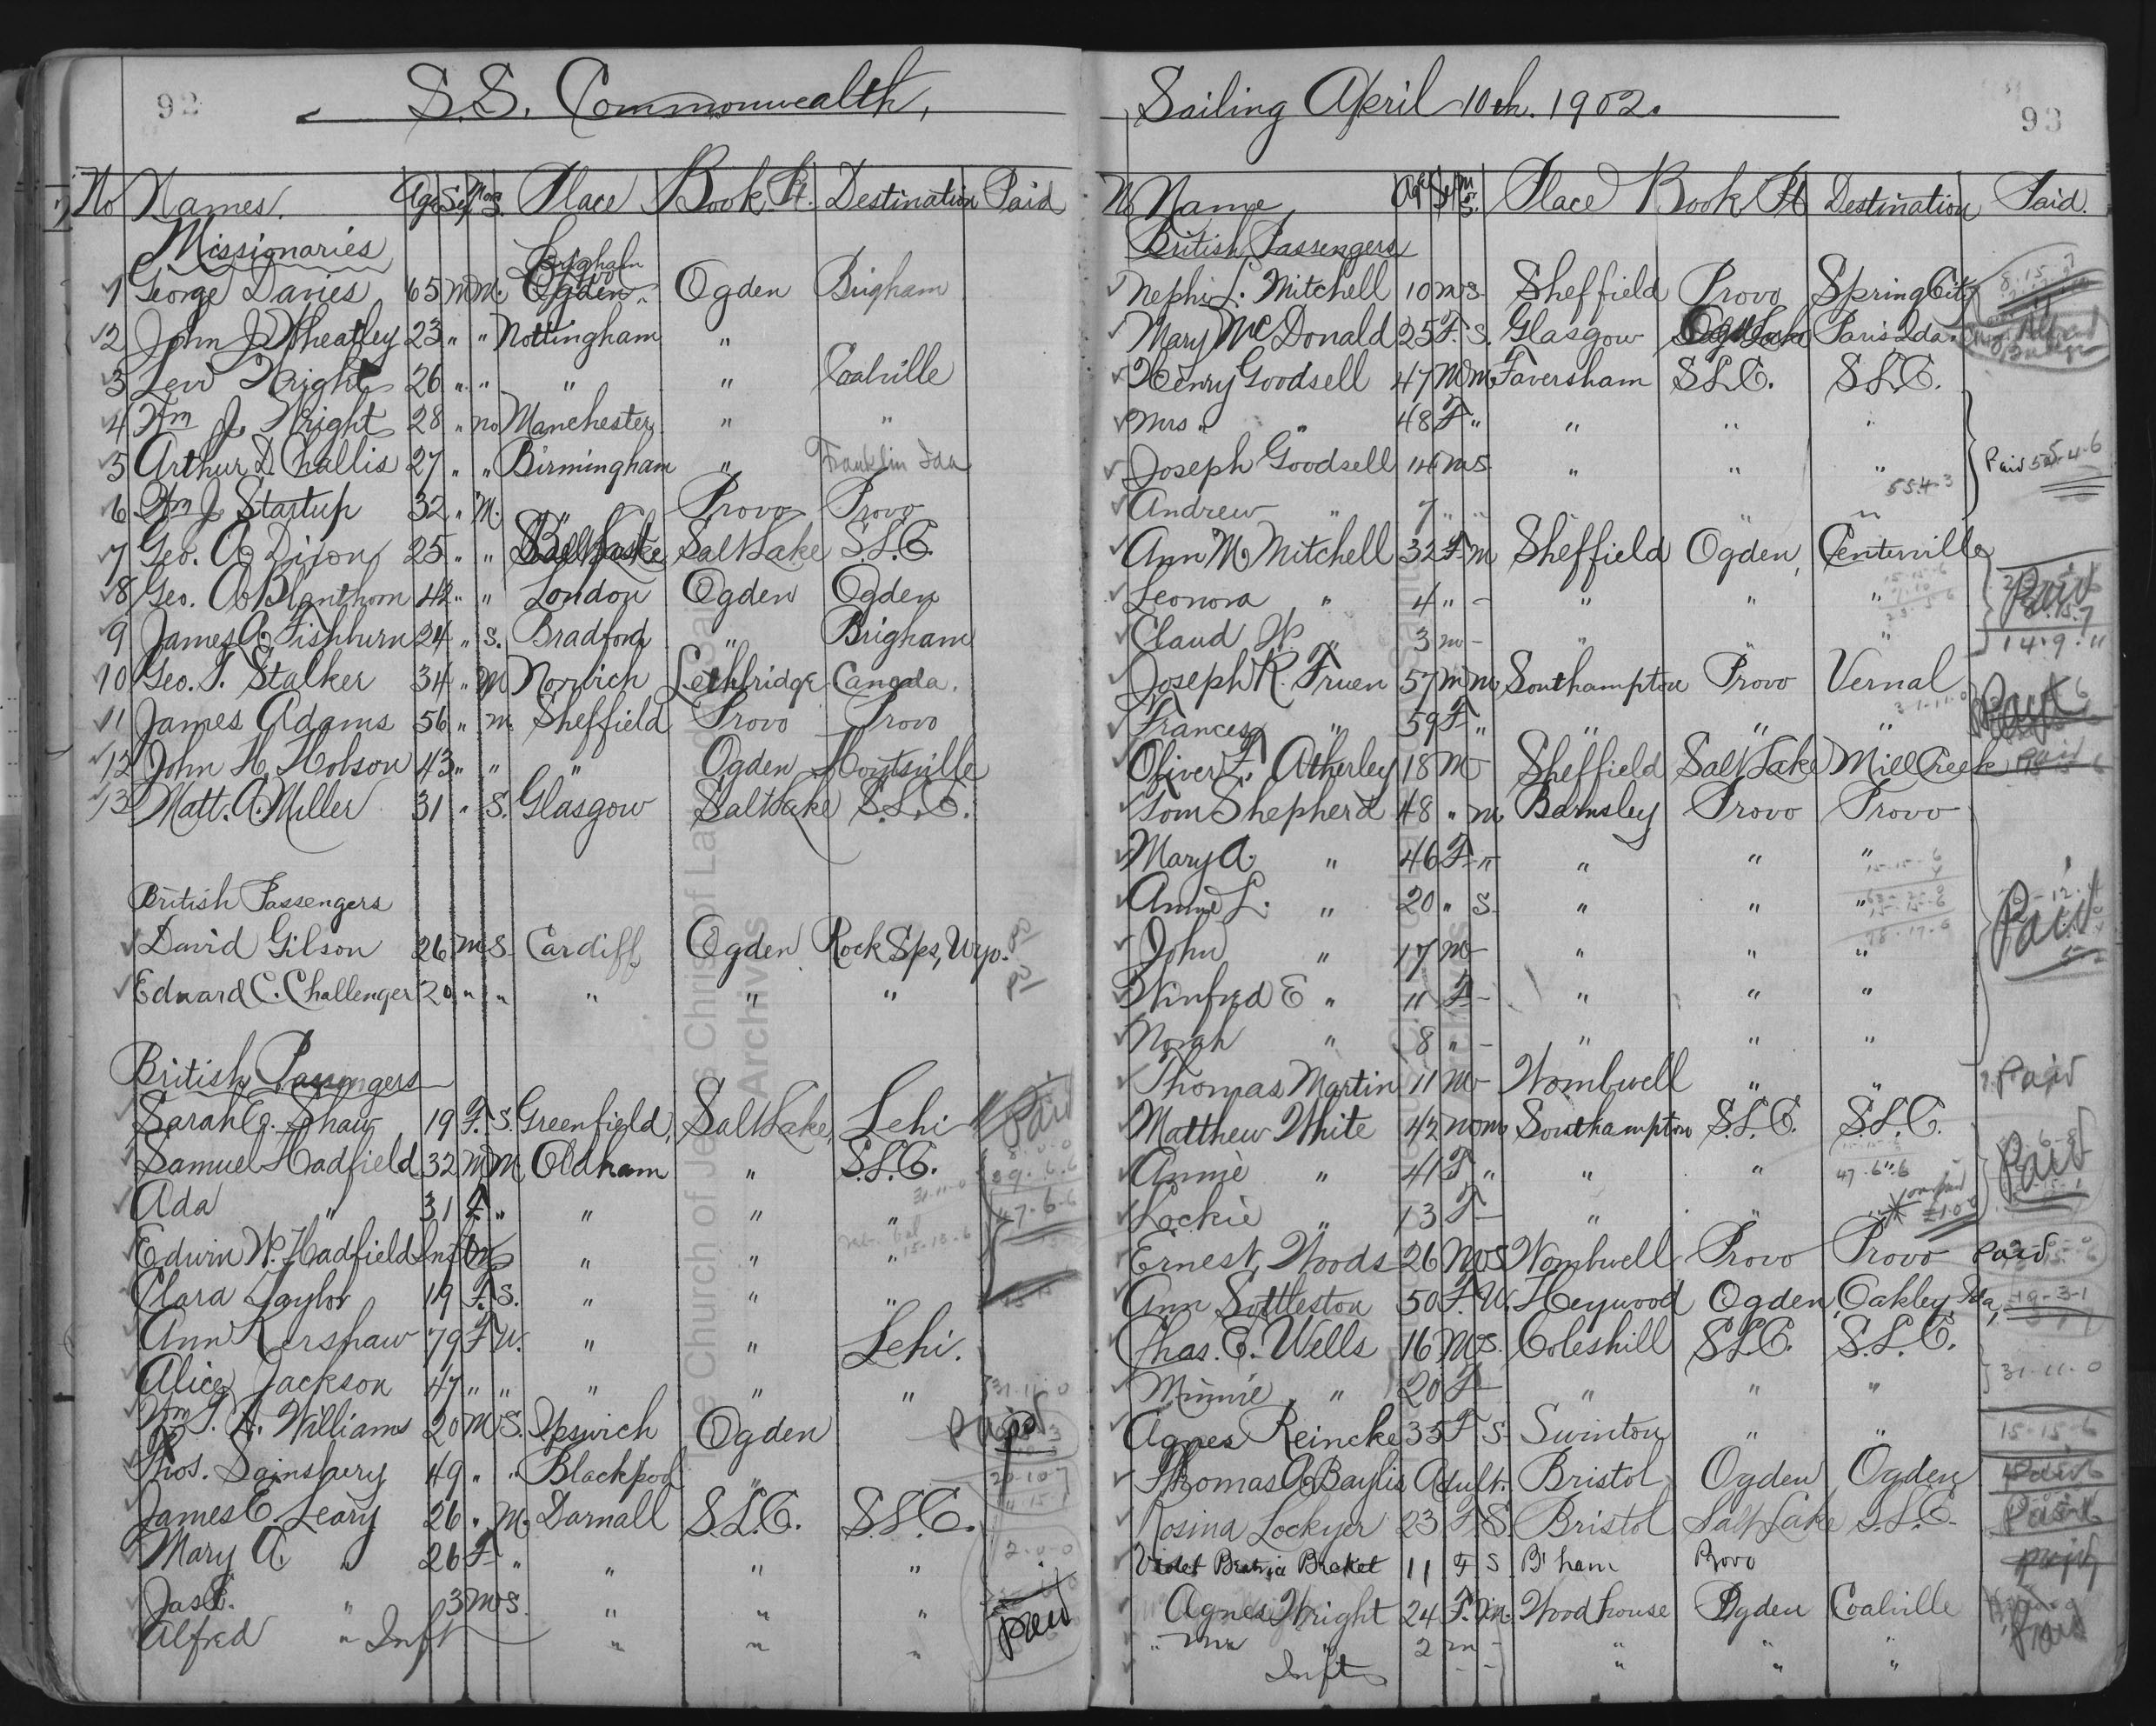 92
S.S. Commonwealth,
No Names. Age Sex Place Book Pt. Destination Paid
Missionaries
1 George Davies 65 M M. Brigham Ogden Ogden Brigham
2 John J. Wheatley 23 " " Nottingham "
3 Levi Wright 26 " " " " Coalville
4 Wm J. Wright 28 " m Manchester " "
5 Arthur D. Challis 27 " " Birmingham " Franklin Ida
6 Wm J. Startup 32 " M. " Provo Provo
7 Geo. A. Dixon 25 " " Salt Lake S.L.C.
8 Geo. A. Blanthorn 42 " " London Ogden Ogden
9 James A. Fishburn 24 " S. Bradford " Brigham
10 Geo. T. Stalker 34 " M Norwich Lethbridge Canada.
11 James Adams 56 " m. Sheffield Provo Provo
12 John H. Hobson 43 " " " Ogden Huntsville
13 Matt. A. Miller 31 " S. Glasgow Salt Lake S.L.C.
British Passengers
David Gilson 26 M S. Cardiff Ogden Rock Sps, Wyo. pd
Edward C. Challenger 20 " " " " " pd
British Passengers
Sarah E. Shaw 19 F. S. Greenfield, Salt Lake, Lehi Paid
Samuel Hadfield 32 M M Oldham " S.L.C.
Ada " 31 F " " " " 47-6-6
Edwin W. Hadfield Inft " " "
Clara Taylor 19 F. S. " " "
Ann Kershaw 79 F W. " " Lehi.
Alice Jackson 47 " " " " " 31-11-0
Wm T. A. Williams 20 M S. Ipswich Ogden paid
Thos. Sainsbury 49 " " Blackpool " 20-10-7
James E. Leary 26 " M. Darnall S.L.C. S.L.C.
Mary A. " 26 F " " " " 2-0-0
Jas E. " 3 M S. " " "
Alfred " Inft " " " paid
93
Sailing April 10th. 1902.
No Name Age Sex Place Book Pt Destination Paid.
British Passengers
Nephi L. Mitchell 10 m s. Sheffield Provo Spring City
Mary McDonald 25 F. S. Glasgow Paris Ida.
Henry Goodsell 47 M m Faversham S.L.C. S.L.C.
Mrs " " 48 F " " " "
Joseph Goodsell 14 m s. " " " Paid 55-4-6
Andrew " 7 " " " " 55.4.3
Ann M. Mitchell 32 F. m Sheffield Ogden, Centerville
Leonora " 4 " - " " " Paid
Claud W. " 3 m - " " " 14.9.11
Joseph R. Fruen 57 m m Southampton Provo Vernal
Frances " 59 F " " " "
Oliver F. Atherley 18 M - Sheffield Salt Lake Mill Creek
Tom Shepherd 48 " m Barnsley Provo Provo
Mary A. " 46 F " " " "
Annie L. " 20 " S. " " " Paid
John " 17 m - " " "
Winfred E " 11 F - " " "
Norah " 8 " - " " "
Thomas Martin 11 M - Wombwell " " Paid
Matthew White 42 m m Southampton S.L.C. S.L.C.
Annie " 41 F " " " 47-6-6 Paid
Lockie " 13 F - " "
Ernest Woods 26 M S Wombwell Provo Provo Paid
Ann Sottleston 50 F. W. Heywood Ogden, Oakley, Ida, 19-3-1
Chas. E. Wells 16 M S. Coleshill S.L.C. S.L.C.
Minnie " 20 F - " " " 31-11-0
Agnes Reincke 35 F S. Swinton " " 15-15-6
Thomas A. Baylis Adult. Bristol Ogden Ogden
Rosina Lockyer 23 F. S. Bristol Salt Lake S.L.C.
Violet Beatrice Breket 11 F S B'ham Provo paid
Agnes Wright 24 F. m. Woodhouse Ogden Coalville Paid
" " 2 m - " " "
Inft - - " " "